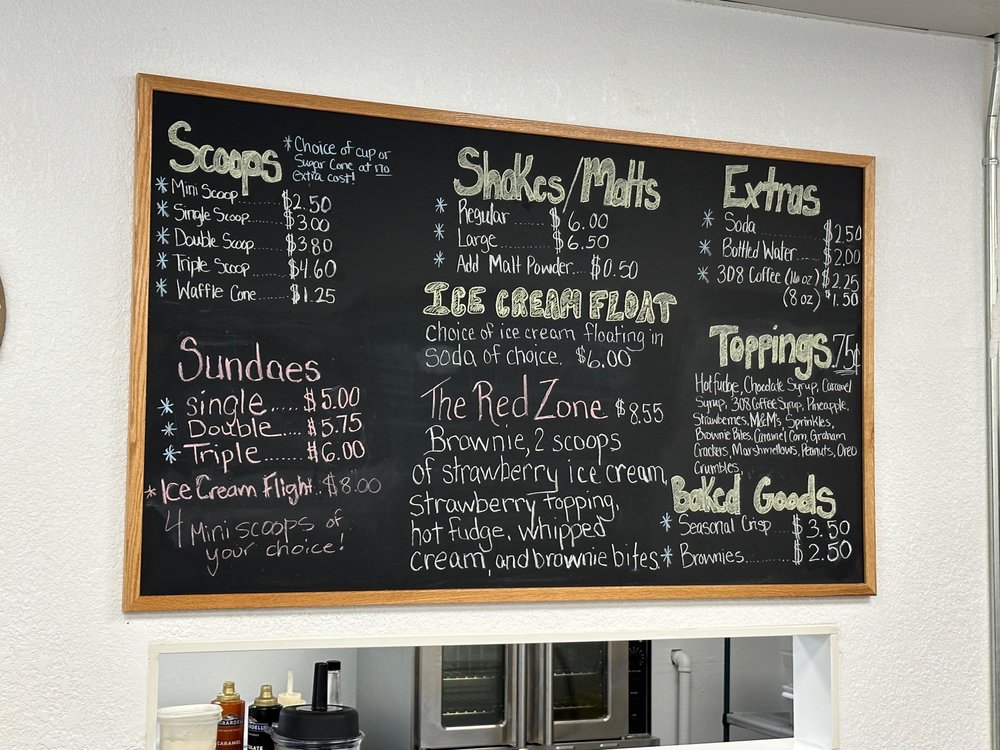 Scoops
*Choice of cup or
Sugar Cone at no
extra cost!
* Mini Scoop........$2.50
* Single Scoop.......$3.00
* Double Scoop....$3.80
* Triple Scoop......$4.60
* Waffle Cone......$1.25
Sundaes
* single.....$5.00
* Double....$5.75
* Triple.......$6.00
*Ice Cream Flight..$8.00
4 Mini scoops of
your choice!
Shakes/Malts
* Regular........$6.00
* Large..........$6.50
* Add Malt Powder...$0.50
ICE CREAM FLOAT
Choice of ice cream floating in
Soda of choice. $6.00
The Red Zone $8.55
Brownie, 2 scoops
of strawberry ice cream,
Strawberry topping,
hot fudge, whipped
cream, and brownie bites
Extras
* Soda............$2.50
* Bottled Water......$2.00
* 308 Coffee (16 oz) $2.25
(8 oz) $1.50
Toppings 75¢
Hot fudge, Chocolate Syrup, Caramel
Syrup, 308 Coffee Syrup, Pineapple,
Strawberries, M&M's, Sprinkles,
Brownie Bites, Caramel Corn, Graham
Crackers, Marshmellows, Peanuts, Oreo
Crumbles
Baked Goods
* Seasonal Crisp....$3.50
* Brownies..........$2.50
CARAMEL